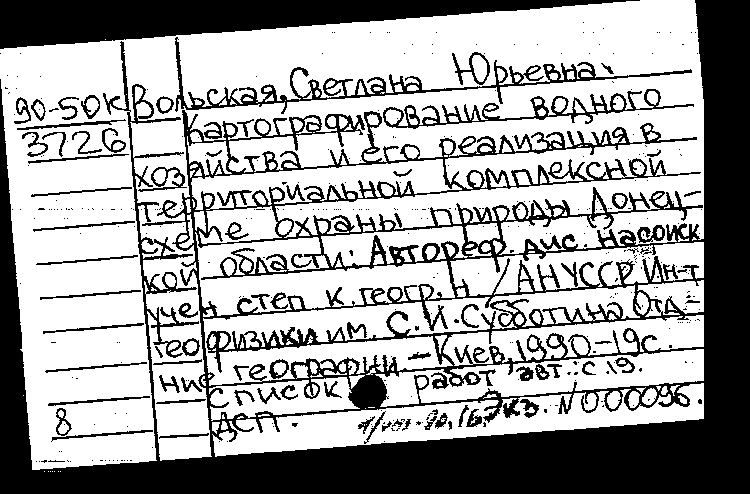 90-50К Вольская, Светлана Юрьевна.
3726 Картографирование водного
хозяйства и его реализация в
территориальной комплексной
схеме охраны природы Донец-
кой области: Автореф. дис. на соиск
учен. степ к. геогр. н / АН УССР, Ин-т
геофизики им. С. И. Субботина Отд-
ние географии. - Киев, 1990. - 19с.
список работ авт.: с 19.
8 ДСП. Экз. N 000096.